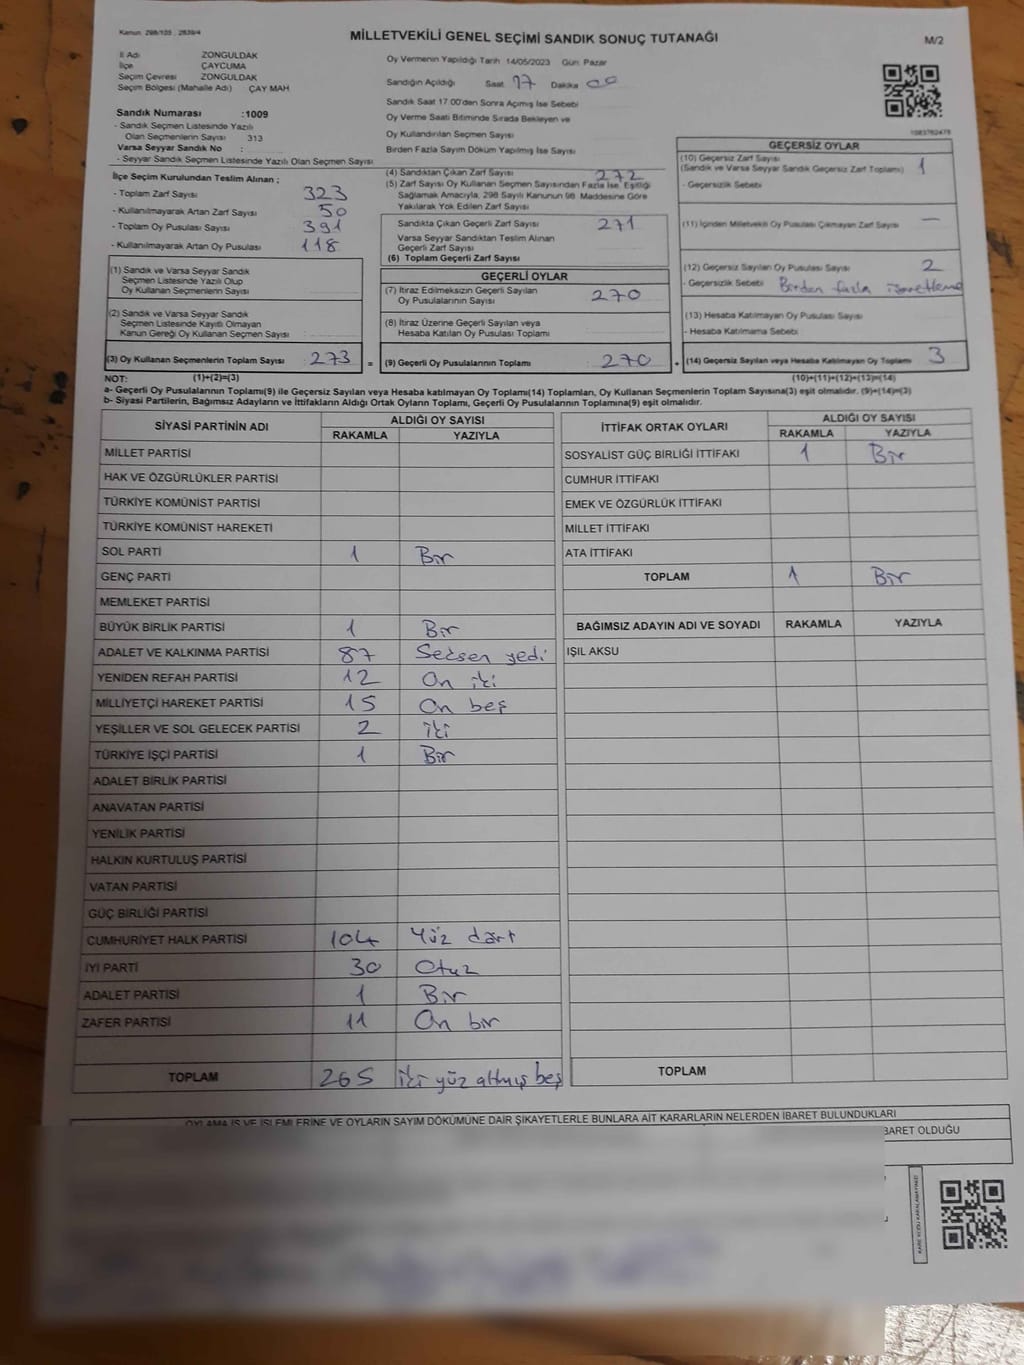 Kanun: 298/105 , 2839/4
MİLLETVEKİLİ GENEL SEÇİMİ SANDIK SONUÇ TUTANAĞI
M/2
İl Adı ZONGULDAK
İlçe ÇAYCUMA
Seçim Çevresi ZONGULDAK
Seçim Bölgesi (Mahalle Adı) ÇAY MAH
Oy Vermenin Yapıldığı Tarih 14/05/2023 Gün: Pazar
Sandığın Açıldığı Saat 17 Dakika 00
Sandık Saat 17.00'den Sonra Açılmış İse Sebebi
Oy Verme Saati Bitiminde Sırada Bekleyen ve
Oy Kullandırılan Seçmen Sayısı
Birden Fazla Sayım Döküm Yapılmış İse Sayısı
Sandık Numarası :1009
- Sandık Seçmen Listesinde Yazılı
Olan Seçmenlerin Sayısı 313
Varsa Seyyar Sandık No :
- Seyyar Sandık Seçmen Listesinde Yazılı Olan Seçmen Sayısı
İlçe Seçim Kurulundan Teslim Alınan ;
- Toplam Zarf Sayısı 323
- Kullanılmayarak Artan Zarf Sayısı 50
- Toplam Oy Pusulası Sayısı 391
- Kullanılmayarak Artan Oy Pusulası 118
(1) Sandık ve Varsa Seyyar Sandık
Seçmen Listesinde Yazılı Olup
Oy Kullanan Seçmenlerin Sayısı
(2) Sandık ve Varsa Seyyar Sandık
Seçmen Listesinde Kayıtlı Olmayan
Kanun Gereği Oy Kullanan Seçmen Sayısı
(3) Oy Kullanan Seçmenlerin Toplam Sayısı 273 =
(1)+(2)=(3)
(4) Sandıktan Çıkan Zarf Sayısı 272
(5) Zarf Sayısı Oy Kullanan Seçmen Sayısından Fazla İse, Eşitliği
Sağlamak Amacıyla, 298 Sayılı Kanunun 98. Maddesine Göre
Yakılarak Yok Edilen Zarf Sayısı
Sandıkta Çıkan Geçerli Zarf Sayısı 271
Varsa Seyyar Sandıktan Teslim Alınan
Geçerli Zarf Sayısı
(6) Toplam Geçerli Zarf Sayısı
GEÇERLİ OYLAR
(7) İtiraz Edilmeksizin Geçerli Sayılan
Oy Pusulalarının Sayısı 270
(8) İtiraz Üzerine Geçerli Sayılan veya
Hesaba Katılan Oy Pusulası Toplamı
(9) Geçerli Oy Pusulalarının Toplamı 270 +
GEÇERSİZ OYLAR
(10) Geçersiz Zarf Sayısı
(Sandık ve Varsa Seyyar Sandık Geçersiz Zarf Toplamı) 1
- Geçersizlik Sebebi
(11) İçinden Milletvekili Oy Pusulası Çıkmayan Zarf Sayısı —
(12) Geçersiz Sayılan Oy Pusulası Sayısı 2
- Geçersizlik Sebebi Birden fazla işaretleme
(13) Hesaba Katılmayan Oy Pusulası Sayısı
- Hesaba Katılmama Sebebi
(14) Geçersiz Sayılan veya Hesaba Katılmayan Oy Toplamı 3
(10)+(11)+(12)+(13)=(14)
NOT:
a- Geçerli Oy Pusulalarının Toplamı(9) ile Geçersiz Sayılan veya Hesaba katılmayan Oy Toplamı(14) Toplamları, Oy Kullanan Seçmenlerin Toplam Sayısına(3) eşit olmalıdır. (9)+(14)=(3)
b- Siyasi Partilerin, Bağımsız Adayların ve İttifakların Aldığı Ortak Oyların Toplamı, Geçerli Oy Pusulalarının Toplamına(9) eşit olmalıdır.
SİYASİ PARTİNİN ADI ALDIĞI OY SAYISI
RAKAMLA YAZIYLA
MİLLET PARTİSİ
HAK VE ÖZGÜRLÜKLER PARTİSİ
TÜRKİYE KOMÜNİST PARTİSİ
TÜRKİYE KOMÜNİST HAREKETİ
SOL PARTİ 1 Bir
GENÇ PARTİ
MEMLEKET PARTİSİ
BÜYÜK BİRLİK PARTİSİ 1 Bir
ADALET VE KALKINMA PARTİSİ 87 Seksen yedi
YENİDEN REFAH PARTİSİ 12 On iki
MİLLİYETÇİ HAREKET PARTİSİ 15 On beş
YEŞİLLER VE SOL GELECEK PARTİSİ 2 iki
TÜRKİYE İŞÇİ PARTİSİ 1 Bir
ADALET BİRLİK PARTİSİ
ANAVATAN PARTİSİ
YENİLİK PARTİSİ
HALKIN KURTULUŞ PARTİSİ
VATAN PARTİSİ
GÜÇ BİRLİĞİ PARTİSİ
CUMHURİYET HALK PARTİSİ 104 Yüz dört
İYİ PARTİ 30 Otuz
ADALET PARTİSİ 1 Bir
ZAFER PARTİSİ 11 On bir
TOPLAM 265 iki yüz altmış beş
İTTİFAK ORTAK OYLARI ALDIĞI OY SAYISI
RAKAMLA YAZIYLA
SOSYALİST GÜÇ BİRLİĞİ İTTİFAKI 1 Bir
CUMHUR İTTİFAKI
EMEK VE ÖZGÜRLÜK İTTİFAKI
MİLLET İTTİFAKI
ATA İTTİFAKI
TOPLAM 1 Bir
BAĞIMSIZ ADAYIN ADI VE SOYADI RAKAMLA YAZIYLA
IŞIL AKSU
TOPLAM
OYLAMA İŞ VE İŞLEMLERİNE VE OYLARIN SAYIM DÖKÜMÜNE DAİR ŞİKAYETLERLE BUNLARA AİT KARARLARIN NELERDEN İBARET BULUNDUKLARI
BARET OLDUĞU
KARE KODU KARALAMAYINIZ!